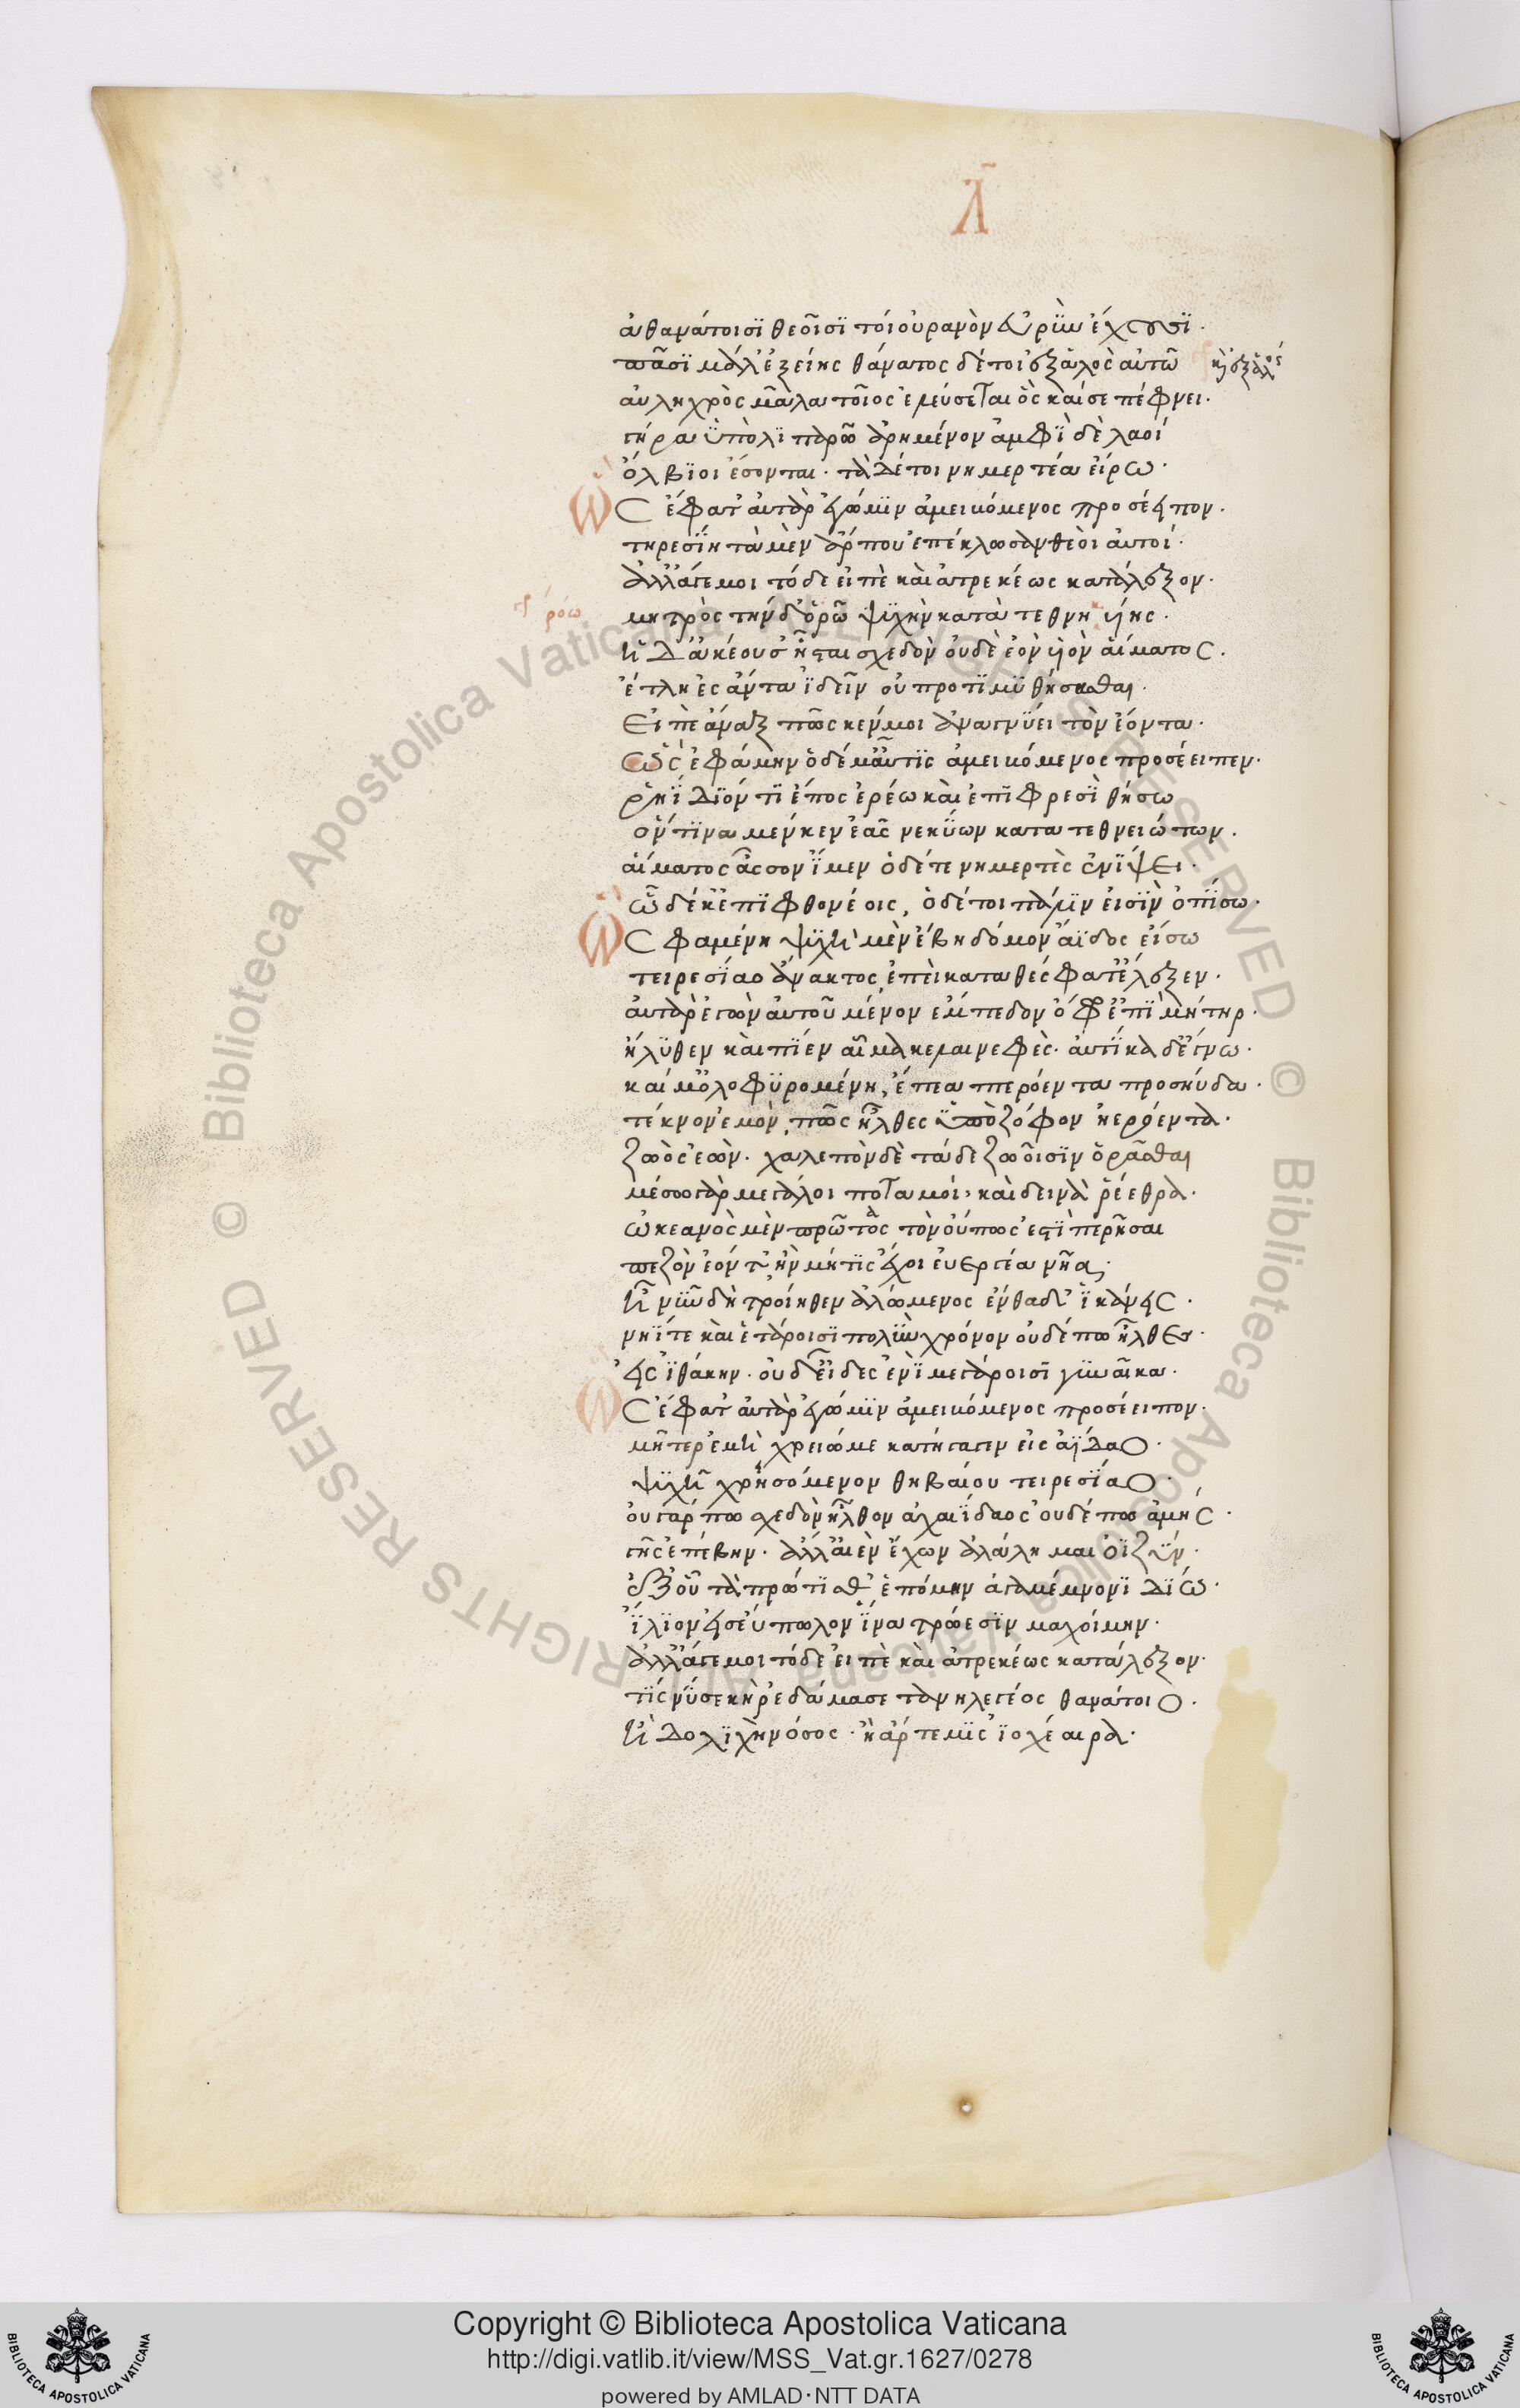 Λ
ἀθανάτοισϊ θεοῖσϊ τοὶ οὐρανὸν εὐρὺν ἔχουσϊ·
πᾶσϊ μάλ' ἑξείης θάνατος δέ τοι ἐξ ἁλὸς αὐτῶ
ἀβληχρὸς μάλα τοῖος ἐλεύσεται ὅς καί σε πέφνει·
γήραι ὕπο λϊπαρῶ ἀρημένον ἀμφὶ δὲ λαοί
ὄλβϊοι ἔσονται· τὰ δέ τοι νημερτέα εἴρω·
Ὣς ἔφατ' αὐτὰρ ἐγώ μϊν ἀμειβόμενος προσέειπον·
τηρεσΐη τὰ μὲν ἄρ που ἐπέκλωσαν θεοὶ αὐτοί·
ἀλλάγε μοι τόδε εἰπὲ καὶ ἀτρεκέως κατάλεξον·
μητρὸς τήνδ' ὁρῶ ψϋχὴν κατατεθνηϊης·
ἡ δ' ἀκέουσ' ἧσται σχεδὸν οὐδὲ ἑὸν υἱὸν αἵματος·
ἔτλη ἐς ἄντα ϊδεῖν οὐ προτϊμϋθήσασθαι·
Εἰπὲ ἄναξ πῶς κεν μοι ἀναγνοίει τὸν ἐόντα·
ὣς ἐφάμην ὁ δέ μ' αὖτις ἀμειβόμενος προσέειπεν·
ῥηΐδϊόν τϊ ἔπος ἐρέω καὶ ἐπῒ φρεσῒ θήσω
ὅντϊνα μέν κεν ἐᾶς νεκύων κατατεθνειώτων·
αἵματος ἆσσον ἴμεν ὁ δέ τε νημερτὲς ἐνΐψει·
ὧ δέ κ' ἐπϊφθονέοις, ὁ δέ τοι πάλϊν εἶσϊν ὀπΐσω·
Ὣς φαμένη ψϋχὴ μὲν ἔβη δόμον ἄϊδος εἴσω
τειρεσΐαο ἄνακτος, ἐπεὶ κατὰ θέσφατ' ἔλεξεν·
αὐτὰρ ἐγὼν αὐτοῦ μένον ἔμπεδον ὄφρ' ἐπῒ μήτηρ·
ἤλϋθεν καὶ πΐεν αἷμα κελαινεφὲς· αὐτΐκα δ' ἔγνω·
καί μ' ὀλοφϋρομένη, ἔπεα πτερόεντα προσηύδα·
τέκνον ἐμὸν, πῶς ἦλθες ὑπὸ ζόφον ἠερόεντα·
ζωὸς ἐὼν· χαλεπὸν δὲ τάδε ζωοῖσϊν ὁρᾶσθαι
μέσσω γὰρ μεγάλοι ποταμοί· καὶ δεινὰ ῥέεθρα·
ὠκεανὸς μὲν πρῶτος τὸν οὔπως ἐστὶ περῆσαι
πεζὸν ἐόντ' ἢν μήτϊς ἔχοι εὐεργέα νῆα·
ἦ νῦν δὴ τροίηθεν ἀλώμενος ἐνθάδ' ἱκάνεις·
νηΐ τε καὶ ἑτάροισϊ πολὺν χρόνον οὐδέπω ἦλθες·
εἰς ϊθάκην· οὐδ' εἶδες ἐνῒ μεγάροισϊ γυναῖκα·
Ὣς ἔφατ' αὐτὰρ ἐγώ μϊν ἀμειβόμενος προσέειπον·
μῆτερ ἐμὴ χρειώ με κατήγαγεν εἰς ἀΐδαο·
ψϋχῆ χρησόμενον θηβαίου τειρεσΐαο·
οὐ γάρ πω σχεδὸν ἦλθον ἀχαιΐδαος οὐδέ πω ἁμῆς·
γῆς ἐπέβην· ἀλλ' αἰὲν ἔχων ἀλάλημαι ὀϊζύν·
ἐξ οὗ τὰ πρώτϊσθ' ἑπόμην ἀγαμέμνονϊ δΐω·
ΐλϊον εἰς εὔπωλον ἵνα τρώεσϊν μαχοίμην·
ἀλλάγε μοι τόδε εἰπὲ καὶ ἀτρεκέως κατάλεξον·
τΐς νύ σε κὴρ ἐδάμασε τανηλεγέος θανάτοιο·
ἦ δολϊχὴ νόσος· ἢ ἄρτεμϊς ϊοχέαιρα·
Copyright © Biblioteca Apostolica Vaticana
http://digi.vatlib.it/view/MSS_Vat.gr.1627/0278
powered by AMLAD·NTT DATA
BIBLIOTECA APOSTOLICA VATICANA
BIBLIOTECA APOSTOLICA VATICANA
© Biblioteca Apostolica Vaticana ALL RIGHTS RESERVED © Biblioteca Apostolica Vaticana ALL RIGHTS RESERVED